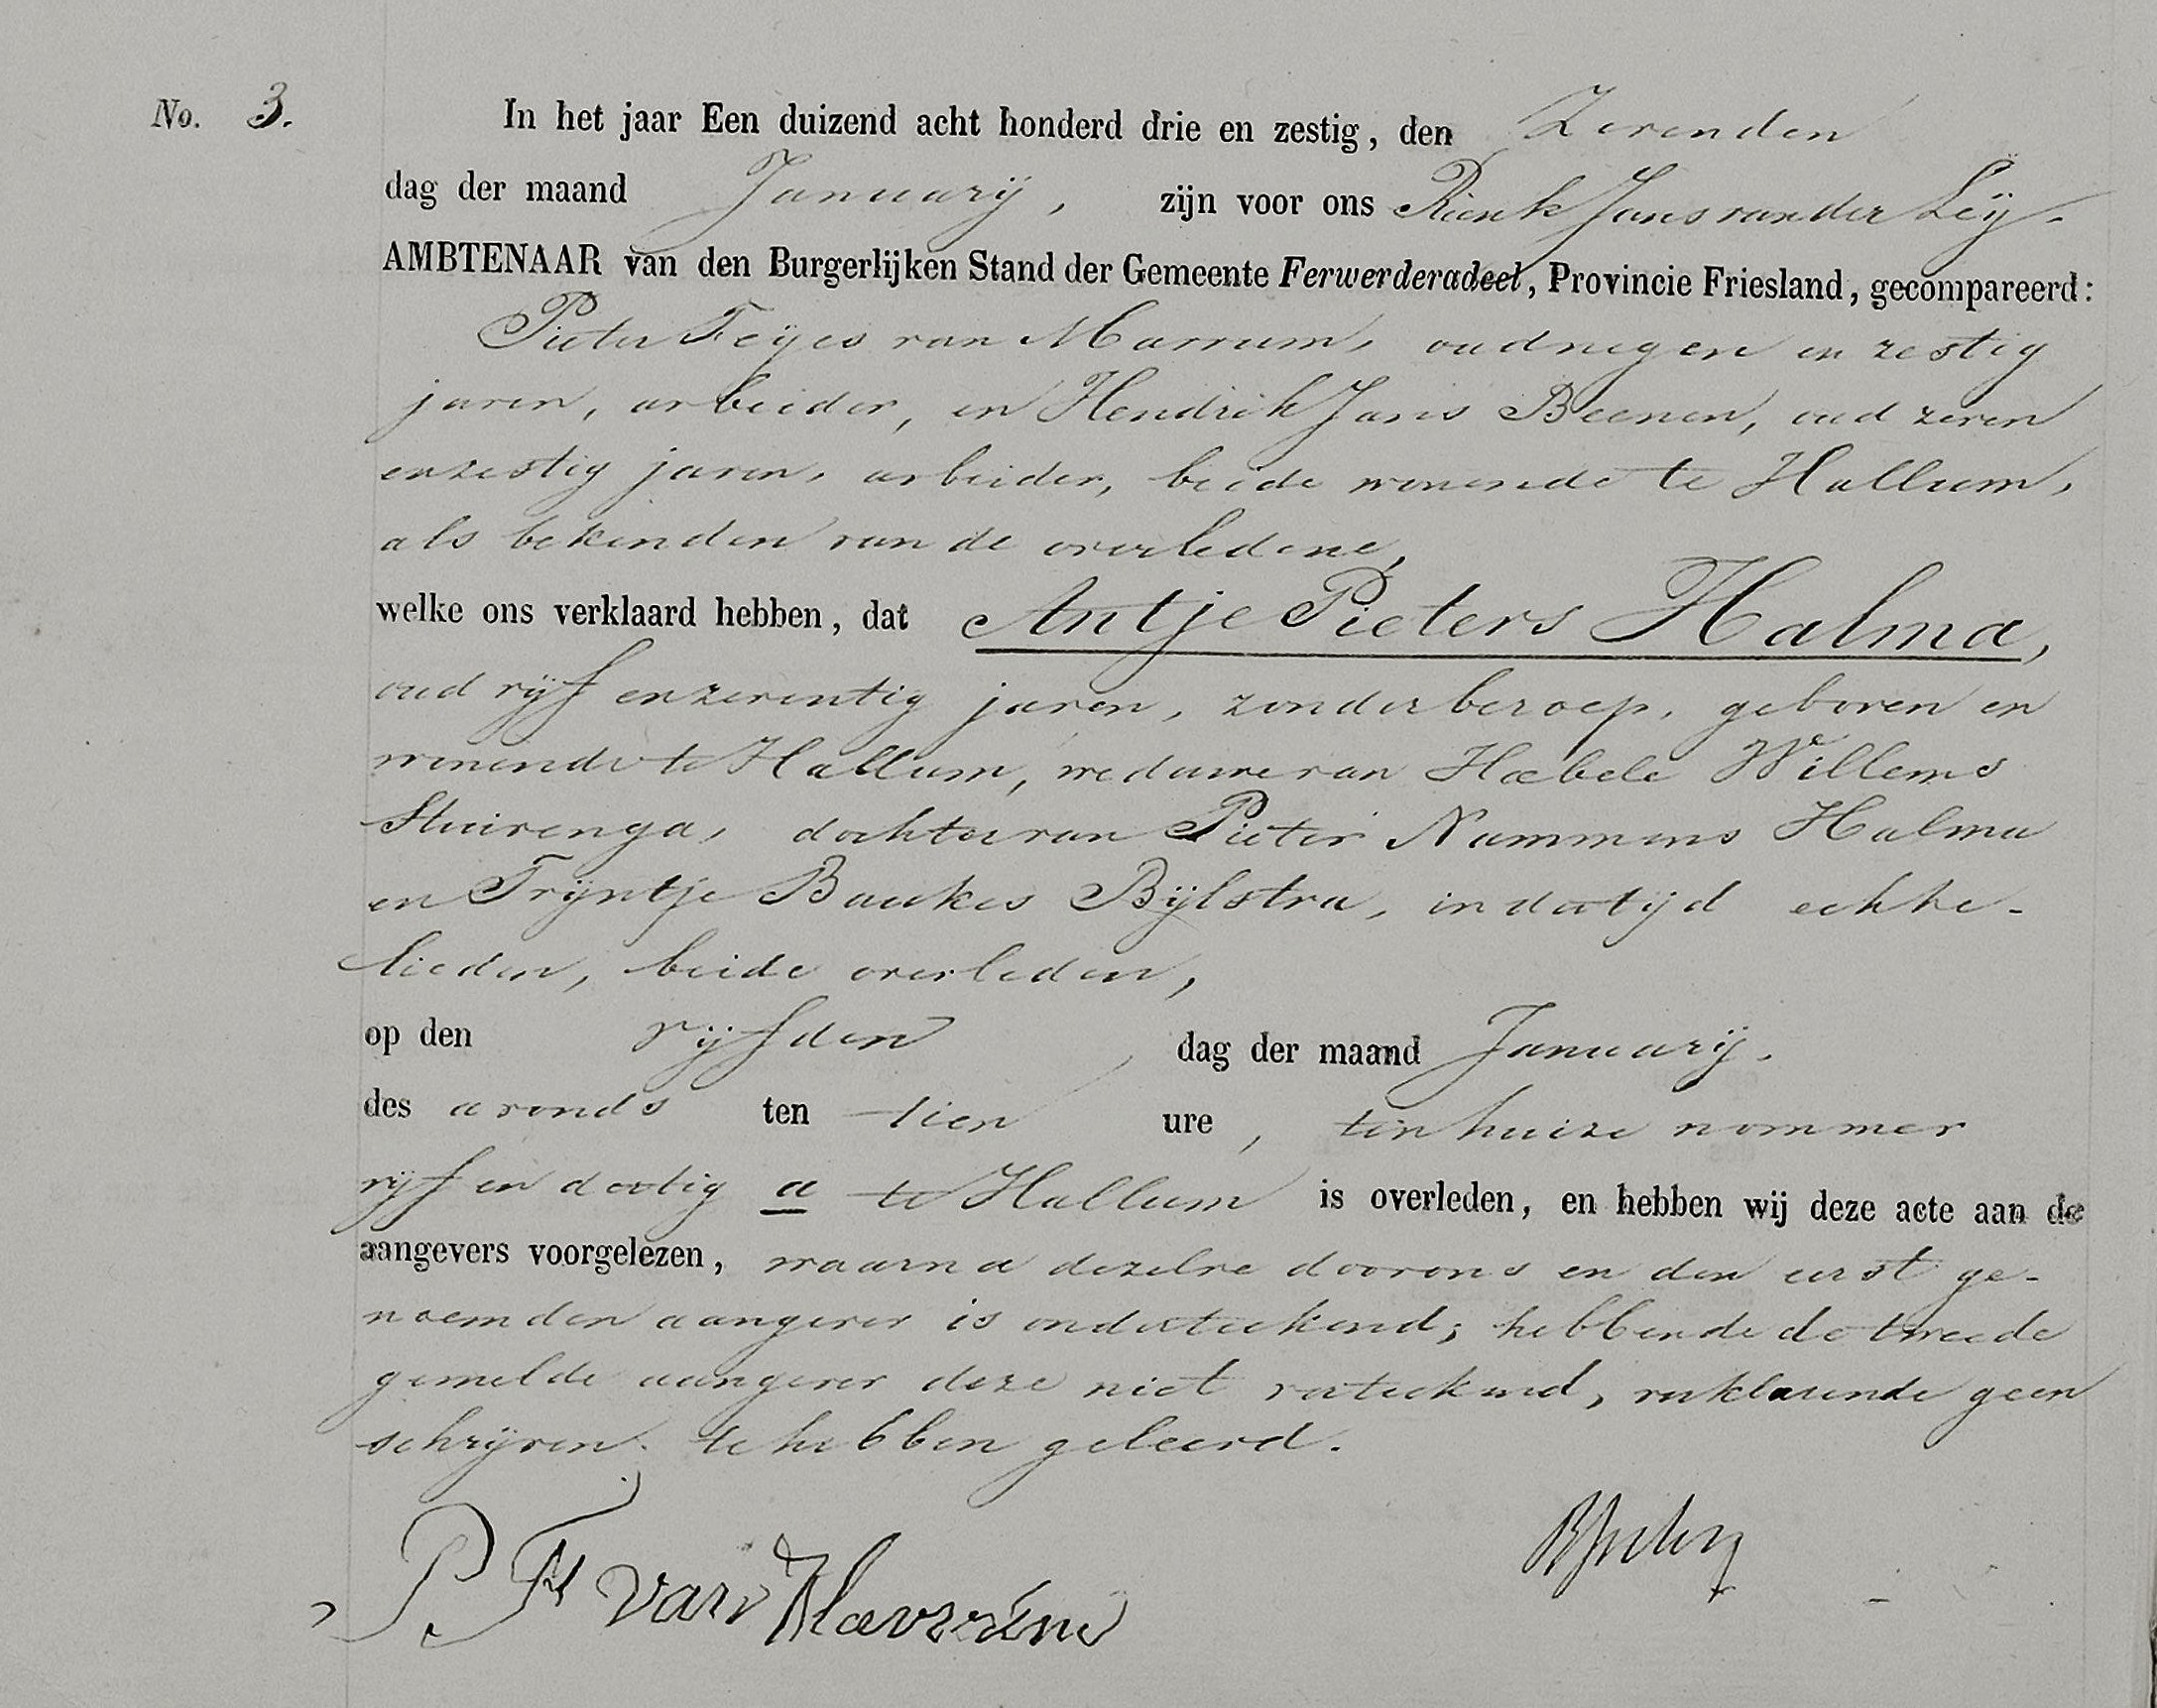 No. 3. In het jaar Een duizend acht honderd drie en zestig, den Zevenden
dag der maand Januarij, zijn voor ons Rienk Jans van der Leij.
AMBTENAAR van den Burgerlijken Stand der Gemeente Ferwerderadeel, Provincie Friesland, gecompareerd:
Pieter Feijes van Marrum, oud negen en zestig
jaren, arbeider, en Hendrik Jans Beenen, oud zeven
en zestig jaren, arbeider, beide wonende te Hallum,
als bekenden van de overledene,
welke ons verklaard hebben, dat Antje Pieters Halma,
oud vijf en zeventig jaren, zonder beroep, geboren en
wonende te Hallum, weduwe van Haebele Willems
Stuivenga, dochter van Pieter Nammens Halma
en Trijntje Baukes Bijlstra, in der tijd echte-
lieden, beide overleden,
op den vijfden, dag der maand Januarij.
des avonds ten tien ure, ten huize nommer
vijf en dertig a te Hallum is overleden, en hebben wij deze acte aan de
aangevers voorgelezen, waarna dezelve door ons en den eerst ge-
noemden aangever is onderteekend; hebbende de tweede
gemelde aangever deze niet verteekend, verklarende geen
schrijven te hebben geleerd.
P F van Marrum